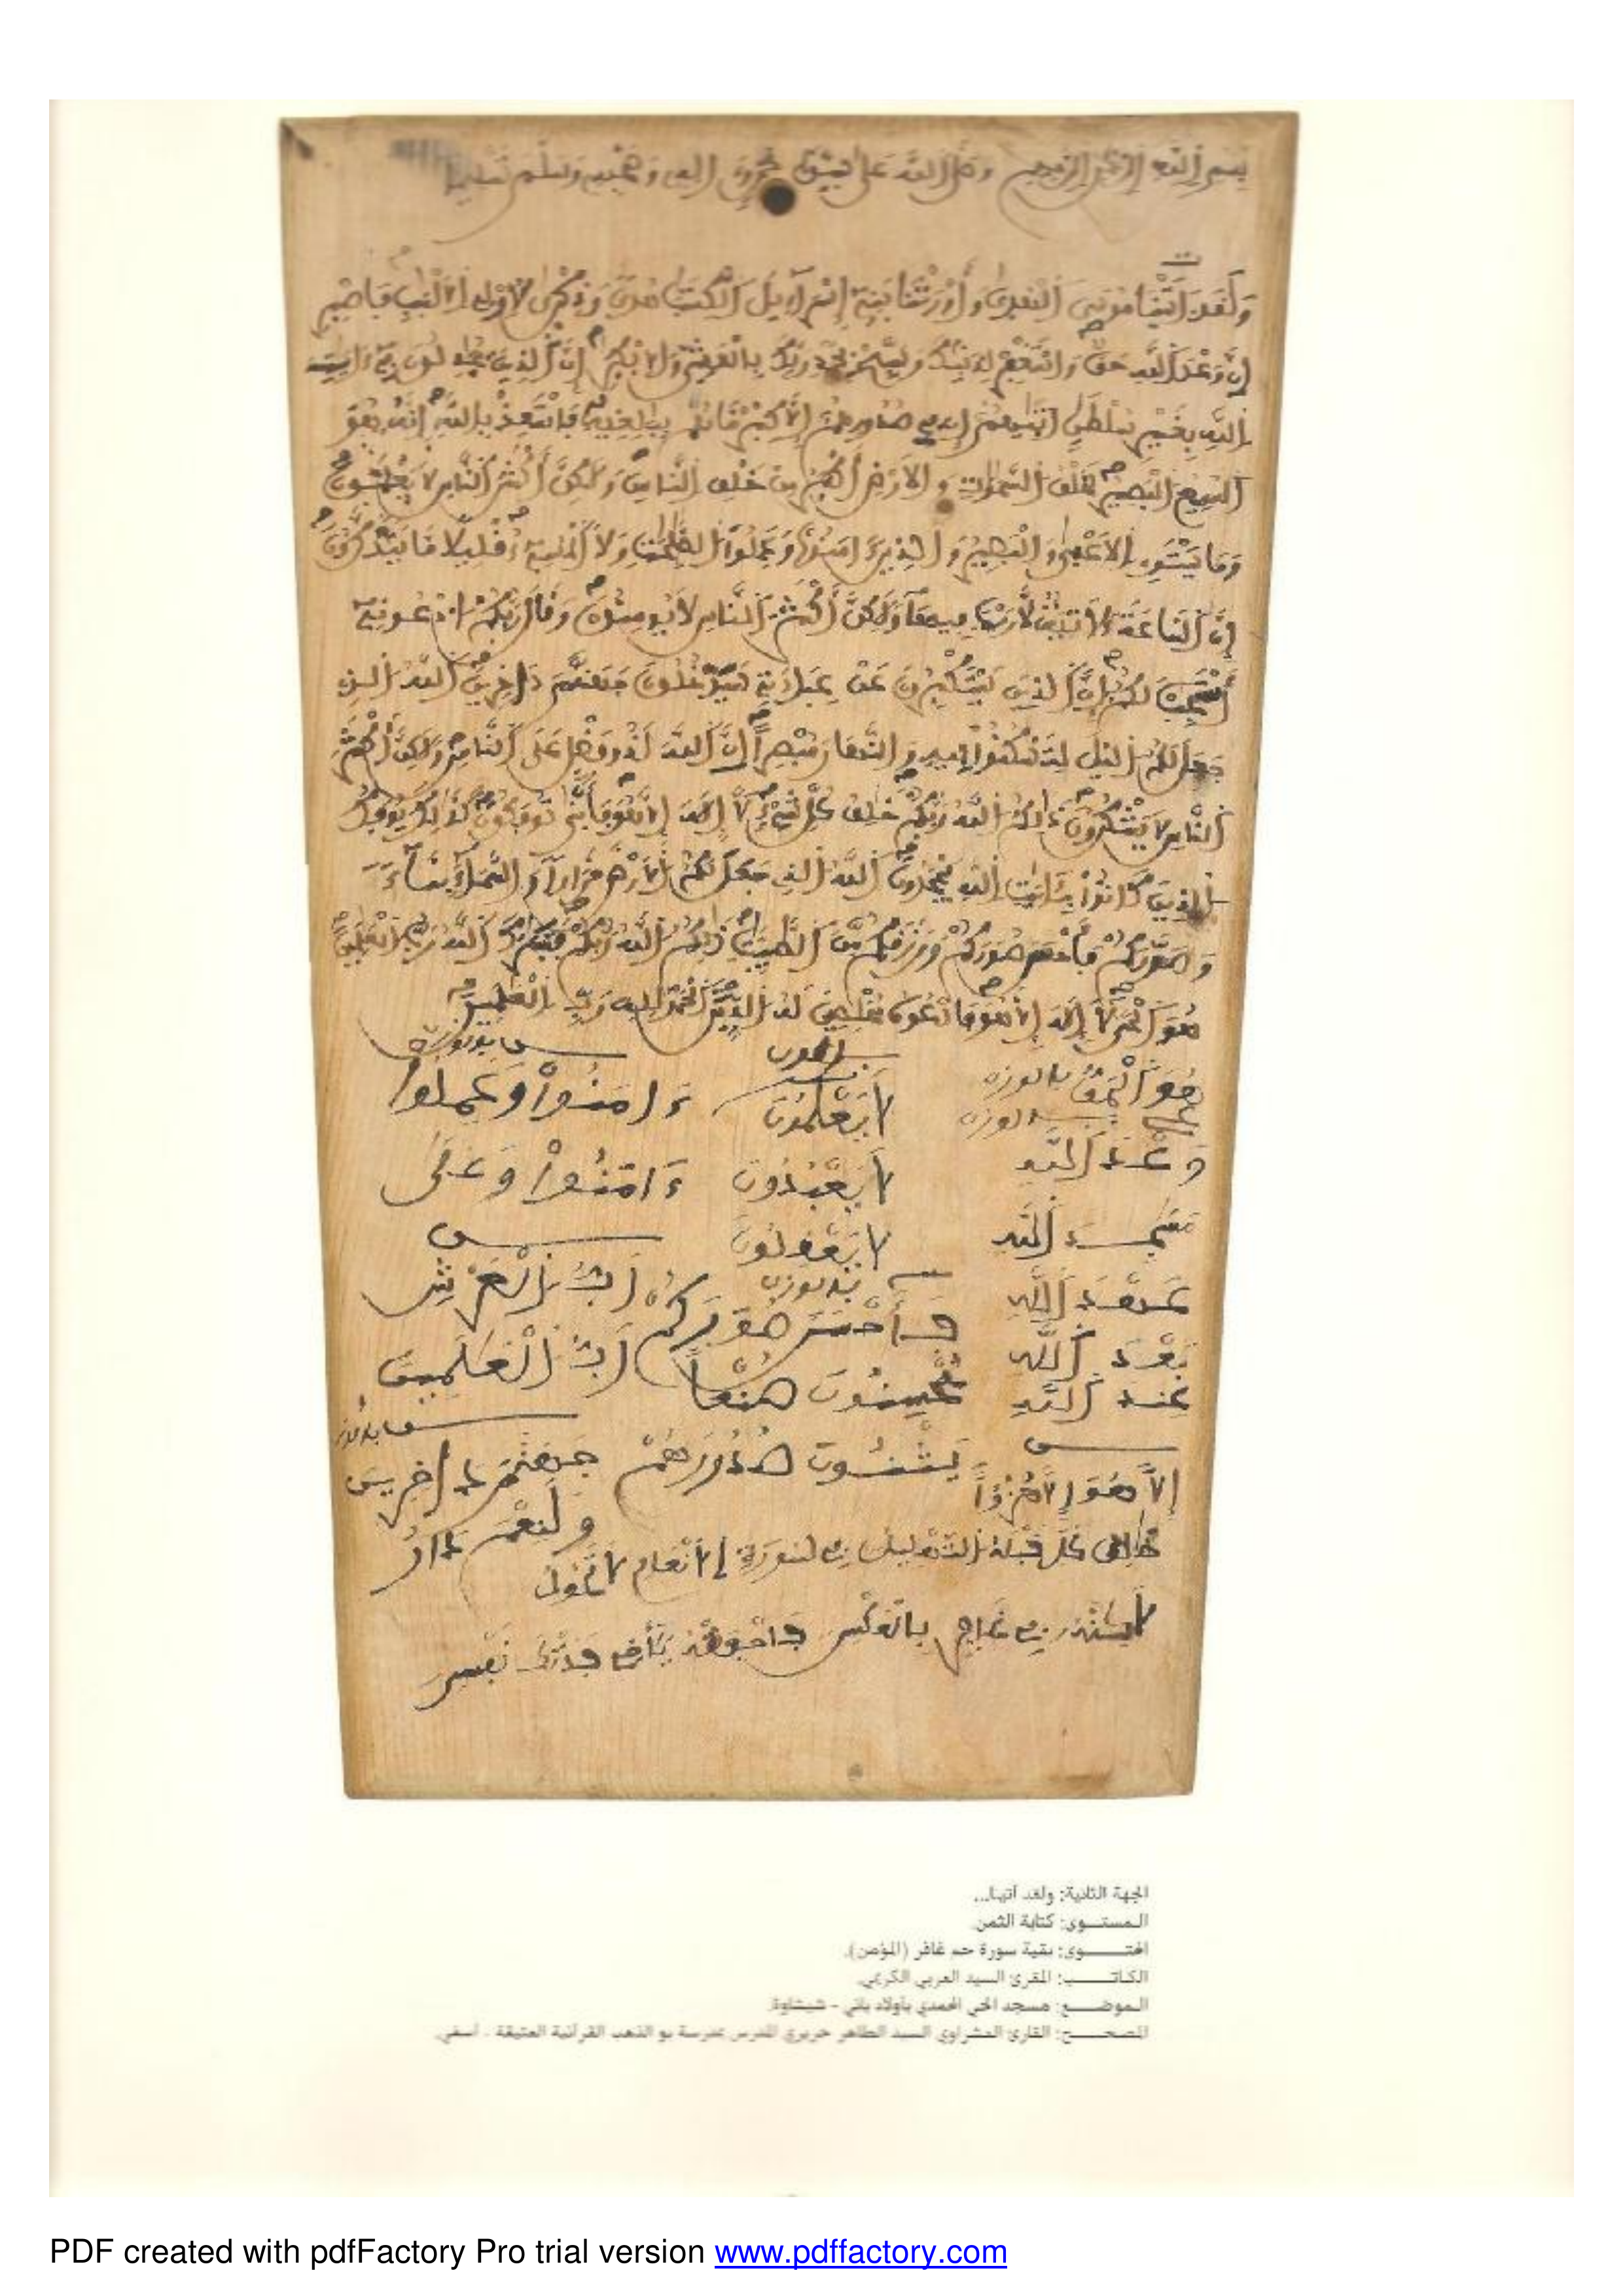 بسم الله الرحمن الرحيم وصلى الله على سيدنا محمد وءاله وصحبه وسلم تسليما
وَلَقَدَ اتَيْنَا مُوسَى الهُدى وَأَوْرَثْنَا بَنِے إِسْرَآءِيلَ الكِتَٰبَ هُدىً وَذِكْرىٰ لِأُوْلِے اِ۬لَالْبَٰبِ فَاصْبِرِ
اِنَّ وَعْدَ اَ۬للَّهِ حَقّٞ وَاسْتَغْفِرْ لِذَنۢبِكَ وَسَبِّحْ بِحَمْدِ رَبِّكَ بِالْعَشِيِّ وَالِابْكٰرِ إِنَّ اَ۬لذِينَ يُجَٰدِلُونَ فِےٓ ءَايَٰتِ
اِ۬للَّهِ بِغَيْرِ سُلْطَٰنٍ اَتَيٰهُمُۥٓ إِن فِے صُدُورِهِمُۥٓ إِلَّا كِبْرٞ مَّا هُم بِبَٰلِغِيهِ فَاسْتَعِذْ بِاللَّهِ إِنَّهُۥ هُوَ
اَ۬لسَّمِيعُ اُ۬لْبَصِيرُ لَخَلْقُ اُ۬لسَّمَٰوَٰتِ وَالَارْضِ أَكْبَرُ مِنْ خَلْقِ اِ۬لنَّاسِ وَلَٰكِنَّ أَكْثَرَ اَ۬لنَّاسِ لَا يَعْلَمُونَ
وَمَا يَسْتَوِے اِ۬لَاعْمىٰ وَالْبَصِيرُ وَالذِينَ ءَامَنُواْ وَعَمِلُواْ اُ۬لصَّٰلِحَٰتِ وَلَا اَ۬لْمُسِےٓءُ قَلِيلاٗ مَّا يَتَذَكَّرُونَ
إِنَّ اَ۬لسَّاعَةَ ءَلَاتِيَةٞ لَّا رَيْبَ فِيهَا وَلَٰكِنَّ أَكْثَرَ اَ۬لنَّاسِ لَا يُومِنُونَ وَقَالَ رَبُّكُمُ اُ۟دْعُونِےٓ
أَسْتَجِبْ لَكُمُۥٓ إِنَّ اَ۬لذِينَ يَسْتَكْبِرُونَ عَنْ عِبَادَتِے سَيَدْخُلُونَ جَهَنَّمَ دَاخِرِينَ اَ۬للَّهُ اُ۬لذِے
جَعَلَ لَكُمُ اُ۬ليْلَ لِتَسْكُنُواْ فِيهِ وَالنَّهَارَ مُبْصِراً اِنَّ اَ۬للَّهَ لَذُو فَضْلٍ عَلَى اَ۬لنَّاسِ وَلَٰكِنَّ أَكْثَرَ
اَ۬لنَّاسِ لَا يَشْكُرُونَ ذَٰلِكُمُ اُ۬للَّهُ رَبُّكُمْ خَٰلِقُ كُلِّ شَےْءٖ لَّآ إِلَٰهَ إِلَّا هُوَ فَأَنّىٰ تُوفَكُونَ كَذَٰلِكَ يُوفَكُ
اُ۬لذِينَ كَانُواْ بِـَٔايَٰتِ اِ۬للَّهِ يَجْحَدُونَ اَ۬للَّهُ اُ۬لذِے جَعَلَ لَكُمُ اُ۬لَارْضَ قَرَاراٗ وَالسَّمَآءَ بِنَآءٗ
وَصَوَّرَكُمْ فَأَحْسَنَ صُوَرَكُمْ وَرَزَقَكُم مِّنَ اَ۬لطَّيِّبَٰتِ ذَٰلِكُمُ اُ۬للَّهُ رَبُّكُمْ فَتَبَٰرَكَ اَ۬للَّهُ رَبُّ اُ۬لْعَٰلَمِينَ
هُوَ اَ۬لْحَىُّ لَآ إِلَٰهَ إِلَّا هُوَ فَادْعُوهُ مُخْلِصِينَ لَهُ اُ۬لدِّينَ اَ۬لْحَمْدُ لِلهِ رَبِّ اِ۬لْعَٰلَمِينَ
لَا يَعْلَمُونَ ءَامَنُواْ وَعَمِلُواْ
وَعْدَ اَللَّهِ
لَا يَعْبُدُونَ ءَامَنُواْ وَعَلَى
لَا يَعْقِلُونَ
عَهْدَ اَللَّهِ
فَأَحْسَنَ صُوَرَكُمْ
بَعْدَ اَللَّهِ
يُحْسِنُونَ صُنْعاً
عِندَ اَللَّهِ
إِلَّا هُوَ إِلَّا هُزُؤاً يَثْنُونَ صُدُورَهُمْ جَهَنَّمَ دَاخِرِينَ
وَلَنِعْمَ دَارُ
الجهة الثانية: ولقد آتينا...
المستــوى: كتابة الثمن.
المحتــــوى: بقية سورة حم غافر (المؤمن).
الكاتـــــب: المقرئ السيد العربي الكريمي.
الموضــــع: مسجد الحي المحمدي بأولاد باني - شيشاوة.
المصحـــــح: القارئ العشراوي السيد الطاهر حريري المدرس بمدرسة بو الذهب القرآنية العتيقة - آسفي.
PDF created with pdfFactory Pro trial version www.pdffactory.com